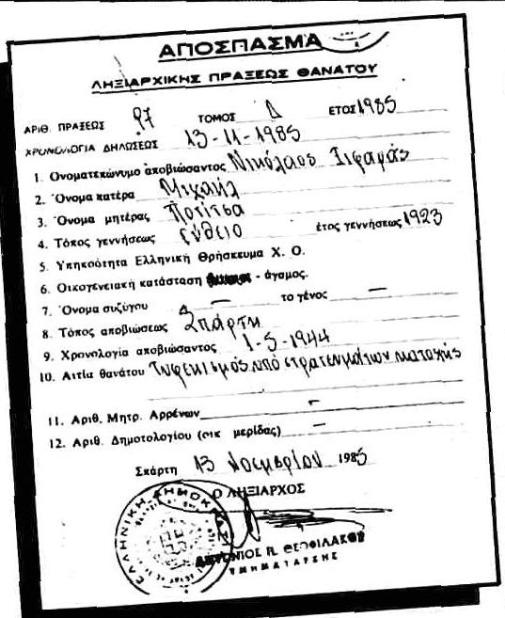 ΑΠΟΣΠΑΣΜΑ
ΛΗΞΙΑΡΧΙΚΗΣ ΠΡΑΞΕΩΣ ΘΑΝΑΤΟΥ
ΑΡΙΘ. ΠΡΑΞΕΩΣ 97 ΤΟΜΟΣ Δ ΕΤΟΣ 1985
ΧΡΟΝΟΛΟΓΙΑ ΔΗΛΩΣΕΩΣ 13-11-1985
1. Ονοματεπώνυμο αποβιώσαντος Νικόλαος
2. Όνομα πατέρα Μιχαήλ
3. Όνομα μητέρας Ποτίτσα
4. Τόπος γεννήσεως Γύθειο έτος γεννήσεως 1923
5. Υπηκοότητα Ελληνική Θρήσκευμα Χ. Ο.
6. Οικογενειακή κατάσταση - άγαμος.
7. Όνομα συζύγου — το γένος —
8. Τόπος αποβιώσεως Σπάρτη
9. Χρονολογία αποβιώσαντος 1-5-1944
10. Αιτία θανάτου Τυφεκισμός υπό στρατευμάτων κατοχής
11. Αριθ. Μητρ. Αρρένων —
12. Αριθ. Δημοτολογίου (οικ μερίδας) —
Σπάρτη 13 Νοεμβρίου 1985
Ο ΛΗΞΙΑΡΧΟΣ
ΕΛΛΗΝΙΚΗ ΔΗΜΟΚΡΑΤΙΑ
ΑΝΤΩΝΙΟΣ Π. ΘΕΟΦΙΛΑΚΟΣ
ΤΜΗΜΑΤΑΡΧΗΣ